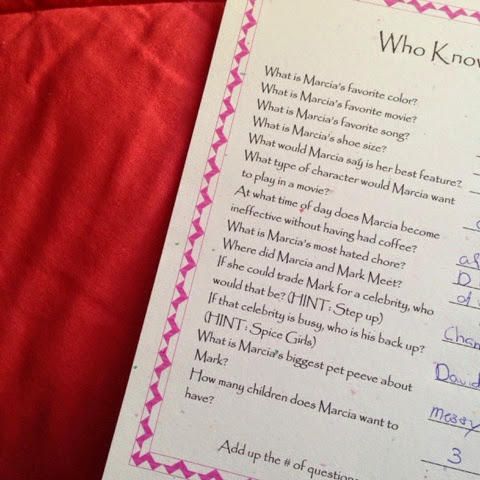 Who Know
What is Marcia's favorite color?
What is Marcia's favorite movie?
What is Marcia's favorite song?
What is Marcia's shoe size?
What would Marcia say is her best feature?
What type of character would Marcia want
to play in a movie?
At what time of day does Marcia become
ineffective without having had coffee?
What is Marcia's most hated chore?
Where did Marcia and Mark Meet? D
If she could trade Mark for a celebrity, who
would that be? (HINT: Step up) Chan
If that celebrity is busy, who is his back up?
(HINT: Spice Girls) David
What is Marcia's biggest pet peeve about
Mark? messy
How many children does Marcia want to
have? 3
Add up the # of question